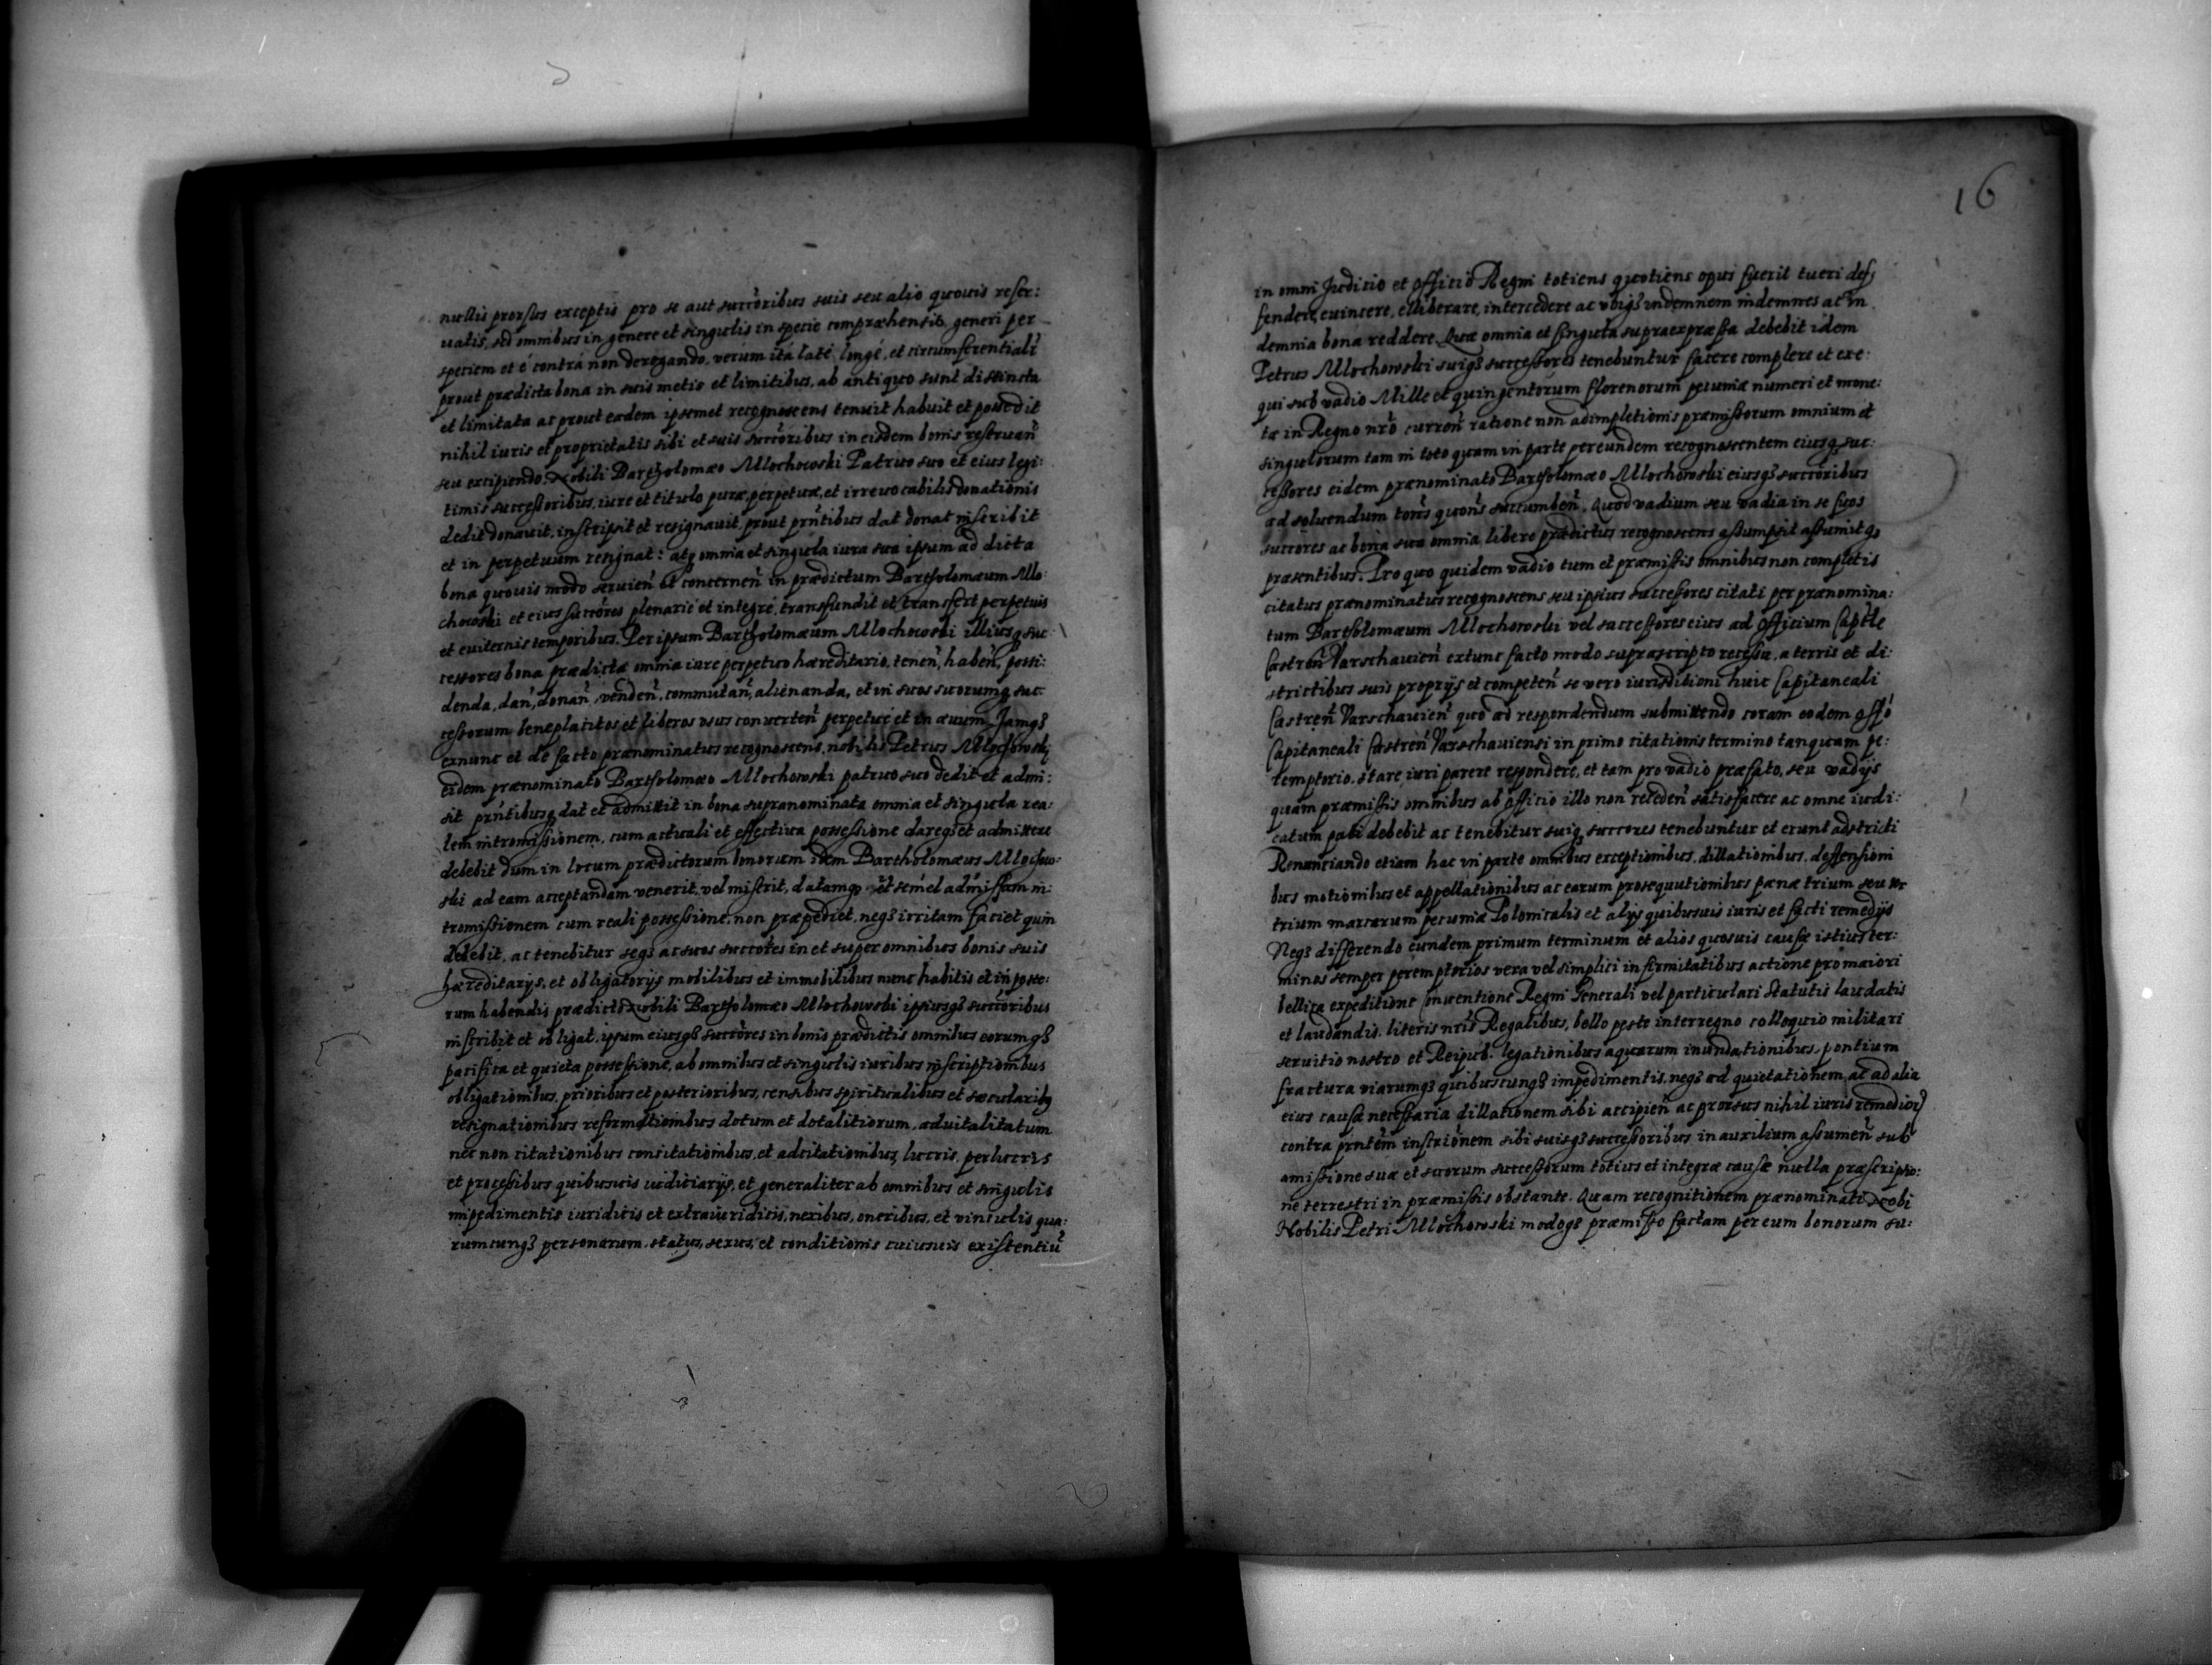 nullis prorsus exceptis pro se aut succoribus suis seu alio quouis reser:
uatis, sed omnibus in genere et singulis in specie compræhensib. generi per
speciem et é contrá non derogando, verum itá laté longé, et circumferentialr̃
prout prædicta bona in suis metis et limitibus, ab antiquo sunt distincta
et limitata ac prout eadem ipsemet recognoscens tenuit habuit et possedit
nihil iuris et proprietatis sibi et suis succoribus in eisdem bonis reseruan̄
seu excipiendo. Nobili Bartholomæo Mlochowski Patruo suo et eius legi:
timis successoribus, iure et titulo puræ, perpetuæ, et irreuocabilis donationis
dedit donauit, inscripsit et resignauit, prout prn̄tibus dat donat inscribit
et in perpetuum resignat: atq3 omnia et singula iura sua ipsum ad dicta
bona quouis modo seruien̄ et concernen̄ in prædictum Bartholomæum Mlo:
chowski et eius succōres plenarié et integré, transfundit et transfert perpetuis
et euiternis temporibus. Per ipsum Bartholomæum Mlochowski illiusq3 suc:
cessores bona prædicta omnia iure perpetuo hæreditario, tenen̄, haben̄, possi:
denda, dan̄, donan̄, venden̄, commutan̄, alienanda, et in suos suorumq3 suc:
cessorum beneplacitos et liberos vsus conuerten̄ perpetué et in æuum. Jamq3
exnunc et de facto prænominatus recognoscens, nobilis Petrus Mlochowski
eidem prænominato Bartholomæo Mlochowski patruo suo dedit et admi:
sit prn̄tibusq3 dat et admittit in bona supranominata omnia et singula rea:
lem intromissionem, cum actuali et effectiua possessione dareq3 et admittere
debebit dum in locum prædictorum bonorum idem Bartholomæus Mlochow:
ski ad eam acceptandam venerit, vel miserit, datamq3 et semel admissam in:
tromissionem cum reali possessione, non præpediet, neq3 irritam faciet quin
debebit, ac tenebitur seq3 ac suos succores in et super omnibus bonis suis
hæreditarÿs, et obligatorÿs mobilibus et immobilibus nunc habitis et in poste:
rum habendis prædicto Nobili Bartholomæo Mlochowski ipsiusq3 succoribus
inscribit et obligat, ipsum eiusq3 succōres in bonis prædictis omnibus eorumq3
pacifica et quieta possessione, ab omnibus et singulis iuribus inscriptionibus
obligationibus, prioribus et posterioribus, censibus spiritualibus et sæcularibq
resignationibus reformationibus dotum et dotalitiorum, aduitalitatum
nec non citationibus concitationibus, et adcitationibus, lucris, perlucris
et processibus quibusuis iudiciarÿs, et generaliter ab omnibus et singulis
impedimentis iuridicis et extraiuridicis, nexibus, oneribus, et vinculis qua:
rumcunq3 personarum, status, sexus, et conditionis cuiusuis existentiū
16
in omni Juditio et Officio Regni totiens quotiens opus fuerit tueri def
fendere, euincere, elliberare, intercedere ac vbiq3 indemnem indemnes ac in
demnia bona reddere. Quæ omnia et singula supraexpræssa debebit idem
Petrus Mlochowski suiq3 successores tenebuntur facere complere et exe:
qui sub vadio Mille et quingentorum florenorum pecuniæ numeri et mone:
tæ in Regno nrō curren̄ ratione non adimpletionis præmissorum omnium et
singulorum tam in toto quam in parte per eundem recognoscentem eiusq3 suc:
cessores eidem prænominato Bartholomæo Mlochowski eiusq3 succoribus
ad soluendum toñs quoñs succumben̄. Quod vadium seu vadia in se suos
succores ac bona sua omnia libere prædictus recognoscens assumpsit assumitq3
præsentibus. Pro quo quidem vadio tum et præmissis omnibus non completis
citatus prænominatus recognoscens seu ipsius successores citati per prænomina:
tum Bartholomæum Mlochowski vel successores eius ad Officium Captle
Castren̄ Varschauien̄ extunc facto modo suprascripto recessu, a terris et di:
strictibus suis proprÿs et competen̄ se vero iurisditioni huic Capitaneali
Castren̄ Varschauien̄ quo ad respondendum submittendo coram eodem offō
Capitaneali Castren̄ Varschauiensi in primo citationis termino tanquam pe:
remptorio, stare iuri parere respondere, et tam pro vadio præfato, seu vadÿs
quam præmissis omnibus ab officio illo non receden̄ satisfacere ac omne iudi:
catum pati debebit ac tenebitur suiq3 succores tenebuntur et erunt adstricti
Renunciando etiam hac in parte omnibus exceptionibus, dillationibus, deffensioni
bus motionibus et appellationibus ac earum prosequutionibus pænæ trium seu
trium marcarum pecuniæ Polonicalis et alÿs quibusuis iuris et facti remedÿs
Neq3 differendo eundem primum terminum et alios quosuis causæ istius ter:
minos semper peremptorios vera vel simplici infirmitatibus actione pro maiori
bellica expeditione Conuentione Regni Generali vel particulari Statutis laudatis
et laudandis, literis nrīs Regalibus, bello peste interregno colloquio militari
seruitio nostro et Reipub. legationibus aquarum inundationibus, pontium
fractura viarumq3 quibuscunq3 impedimentis, neq3 ad quietationem ac ad alia
eius causæ necessaria dillationem sibi accipien̄ ac prorsus nihil iuris remedior)
contra prntēm inscriōnem sibi suisq3 successoribus in auxilium assumen̄ sub
amissione suæ et suorum successorum totius et integræ causæ nulla præscriptio:
ne terrestri in præmissis obstante. Quam recognitionem prænominati Nobi
Nobilis Petri Mlochowski modoq3 præmisso factam per eum bonorum su: